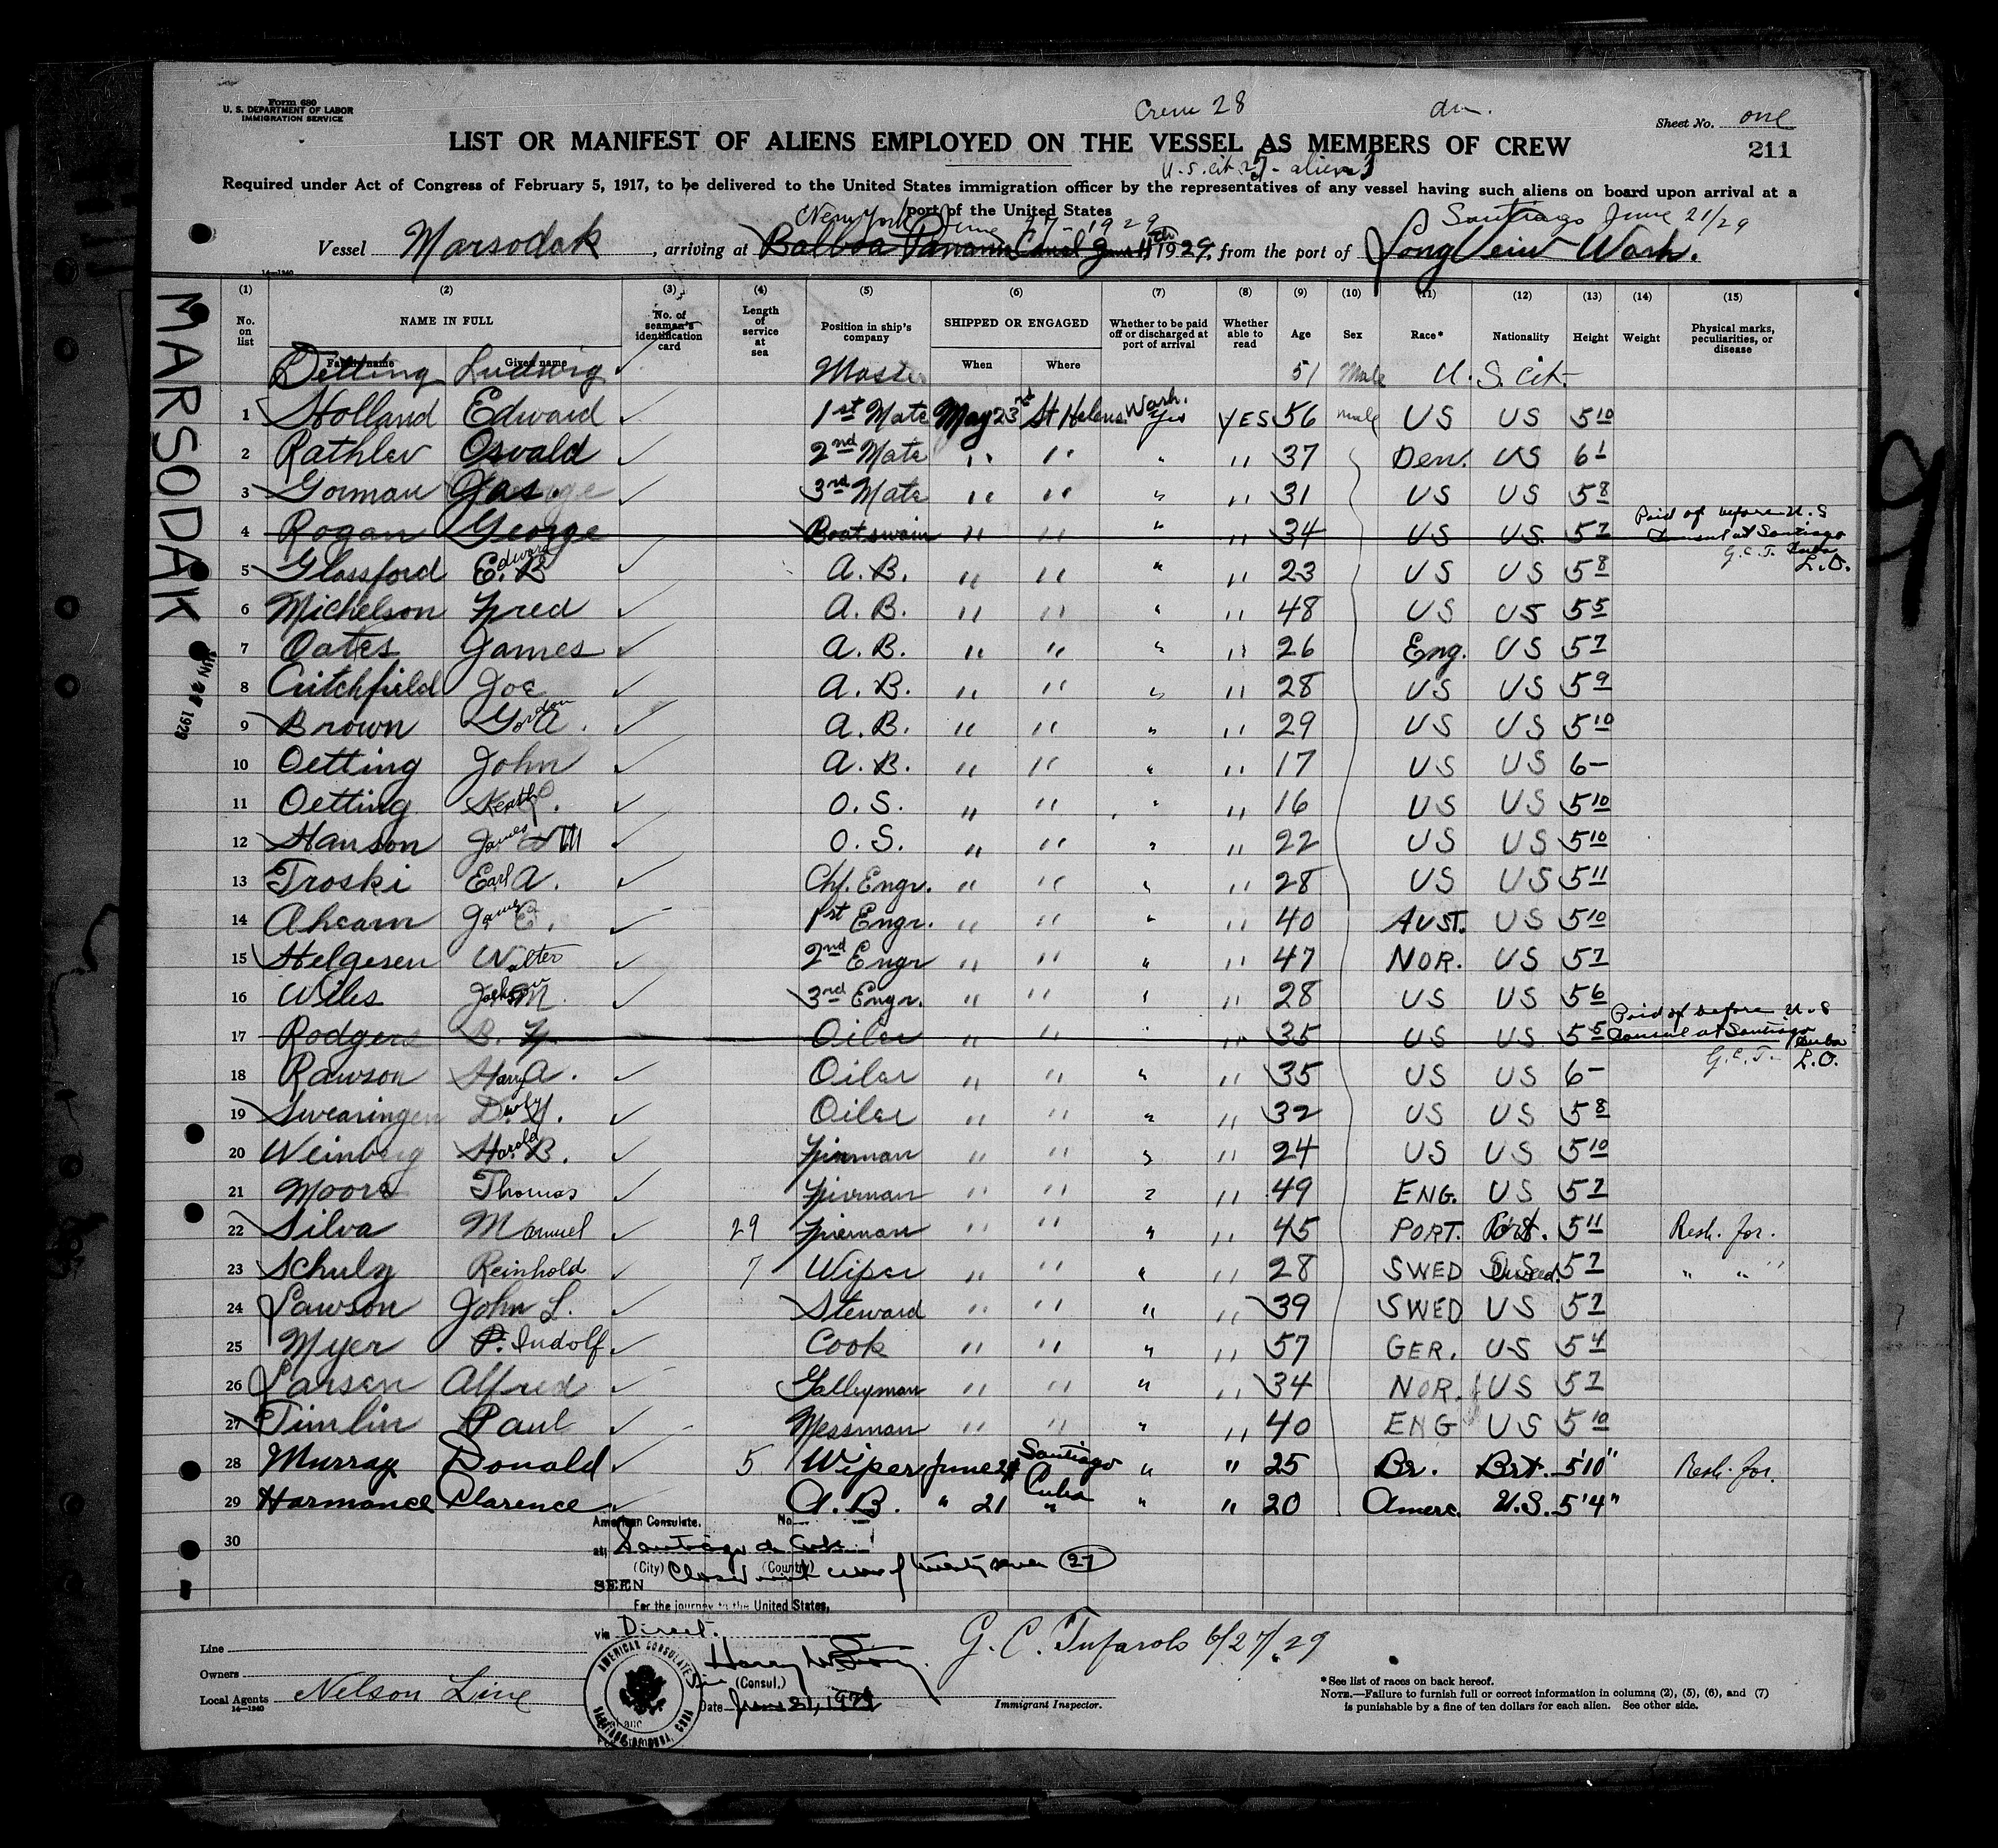 Form 680
U. S. DEPARTMENT OF LABOR
IMMIGRATION SERVICE
Crew 28
Sheet No. one
LIST OR MANIFEST OF ALIENS EMPLOYED ON THE VESSEL AS MEMBERS OF CREW
211
U.S. cit. 25 - aliens 3
Required under Act of Congress of February 5, 1917, to be delivered to the United States immigration officer by the representatives of any vessel having such aliens on board upon arrival at a
port of the United States
New York June 27 - 1929
Santiago June 21/29
Vessel Marsodak, arriving at Balboa Panama Canal June 11th 1929, from the port of Long Veiw Wash.
14-1240
MARSODAK
JUN 27 1929
(1) (2) (3) (4) (5) (6) (7) (8) (9) (10) (11) (12) (13) (14) (15)
No. on list NAME IN FULL No. of seaman's identification card Length of service at sea Position in ship's company SHIPPED OR ENGAGED Whether to be paid off or discharged at port of arrival Whether able to read Age Sex Race* Nationality Height Weight Physical marks, peculiarities, or disease
Family name Given name When Where
Oetting Ludwig ✓ Master 51 Male U.S. Cit.
1 Holland Edward ✓ 1st Mate May 23rd St Helens Wash. Yes YES 56 male US US 5 10
2 Rathlev Osvald ✓ 2nd Mate " " " " 37 Den. US 6 1
3 Gorman Jas. ✓ 3rd Mate " " " " 31 US US 5 8
4 Rogan George Boatswain " " " " 34 US US 5 7 Paid of before U.S Consul at Santiago Cuba G.C.T. L.O.
5 Glassford Edward B ✓ A.B. " " " " 23 US US 5 8
6 Michelson Fred ✓ A.B. " " " " 48 US US 5 5
7 Oates James ✓ A.B. " " " " 26 Eng. US 5 7
8 Critchfield Joe ✓ A.B. " " " " 28 US US 5 9
9 Brown Gordon A. ✓ A.B. " " " " 29 US US 5 10
10 Oetting John ✓ A.B. " " " " 17 US US 6 —
11 Oetting ✓ O.S. " " " " 16 US US 5 10
12 Hanson James ✓ O.S. " " " " 22 US US 5 10
13 Troski Earl A. ✓ Chf. Engr. " " " " 28 US US 5 11
14 Ahearn James E. ✓ 1st Engr. " " " " 40 AUST. US 5 10
15 Helgesen Walter ✓ 2nd Engr " " " " 47 NOR. US 5 7
16 Wiles Jackson M. ✓ 3rd Engr. " " " " 28 US US 5 6
17 Rodgers B. F. Oiler " " " " 35 US US 5 5 Paid of before U.S Consul at Santiago Cuba G.C.T. L.O.
18 Rawson Harry A. ✓ Oiler " " " " 35 US US 6 —
19 Swearingen ✓ Oiler " " " " 32 US US 5 8
20 Weinberg Harold B. ✓ Fireman " " " " 24 US US 5 10
21 Moore Thomas ✓ Fireman " " " " 49 ENG. US 5 7
22 Silva Manuel ✓ 29 Fireman " " " " 45 PORT. Port. 5 11 Resh. for.
23 Schulz Reinhold ✓ 7 Wiper " " " " 28 SWED Swed. 5 7 " "
24 Lawson John L. ✓ Steward " " " " 39 SWED US 5 7
25 Myer P. Rudolf ✓ Cook " " " " 57 GER. US 5 4
26 Larsen Alfred ✓ Galleyman " " " " 34 NOR. US 5 7
27 Timlin Paul ✓ Messman " " " " 40 ENG US 5 10
28 Murray Donald ✓ 5 Wiper June 21 Santiago Cuba " " 25 Br. Brt. 5'10" Resh. for.
29 Harmance Clarence ✓ A.B. " 21 " " " 20 Amerc. U.S. 5'4"
30
American Consulate. No.
at Santiago de Cuba
(City) (Country)
SEEN Closed with crew of twenty seven (27)
For the journey to the United States,
via Direct.
Line
Owners
Local Agents Nelson Line
14-1240
AMERICAN CONSULATE SANTIAGO DE CUBA, CUBA
(Consul.)
Date June 21, 1929
G. C. Tufarolo 6/27/29
Immigrant Inspector.
*See list of races on back hereof.
NOTE.—Failure to furnish full or correct information in columns (2), (5), (6), and (7)
is punishable by a fine of ten dollars for each alien. See other side.